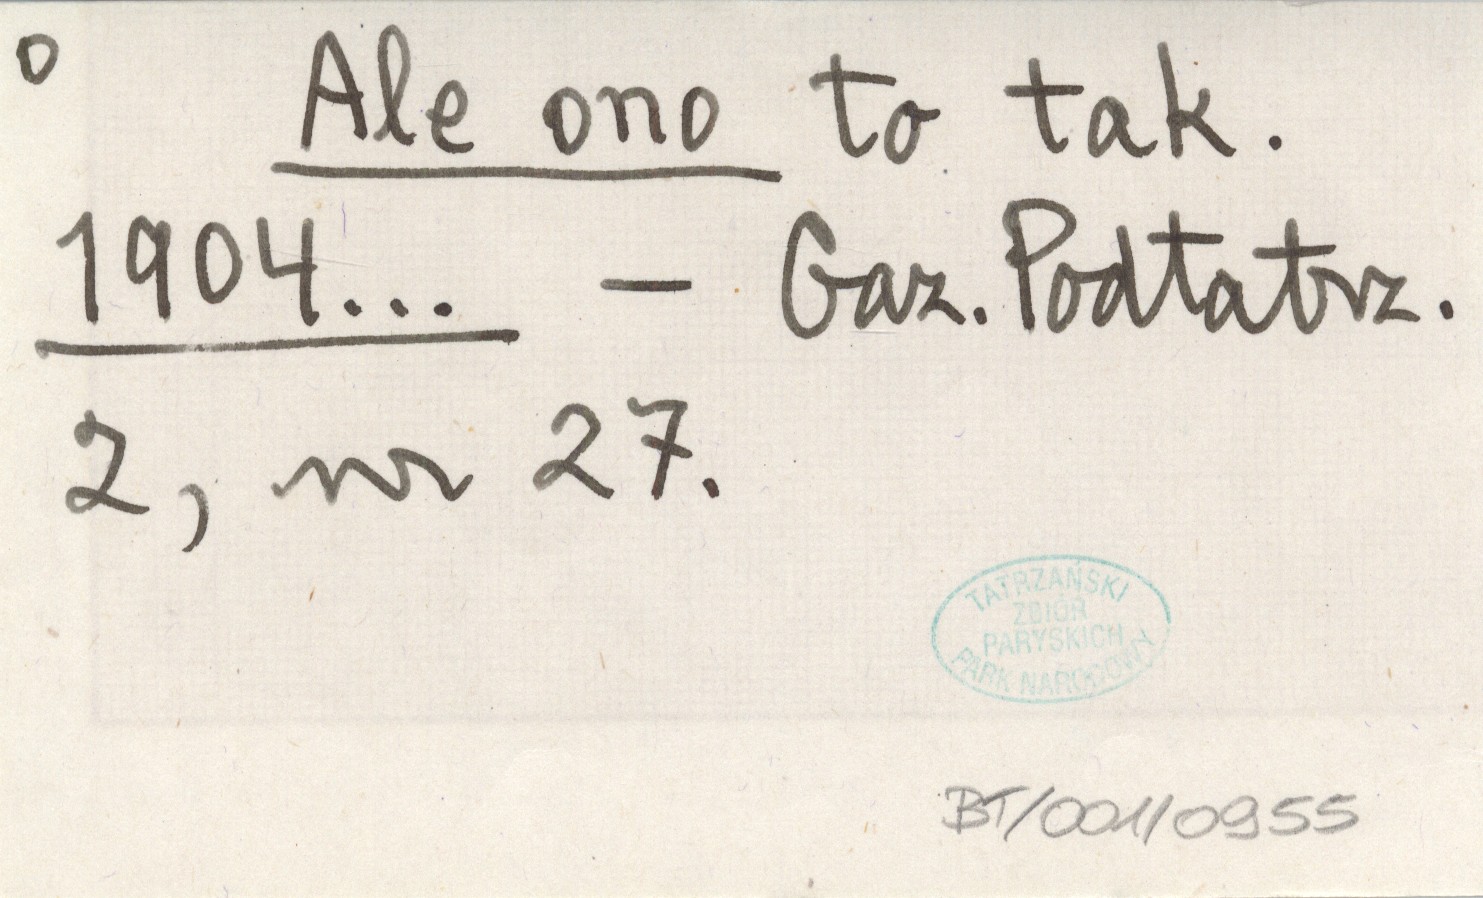 o
Ale ono to tak.
1904... — Gaz. Podtatrz.
2, nr 27.
TATRZAŃSKI
ZBIÓR
PARYSKICH
PARK NARODOWY
BT/001/0955